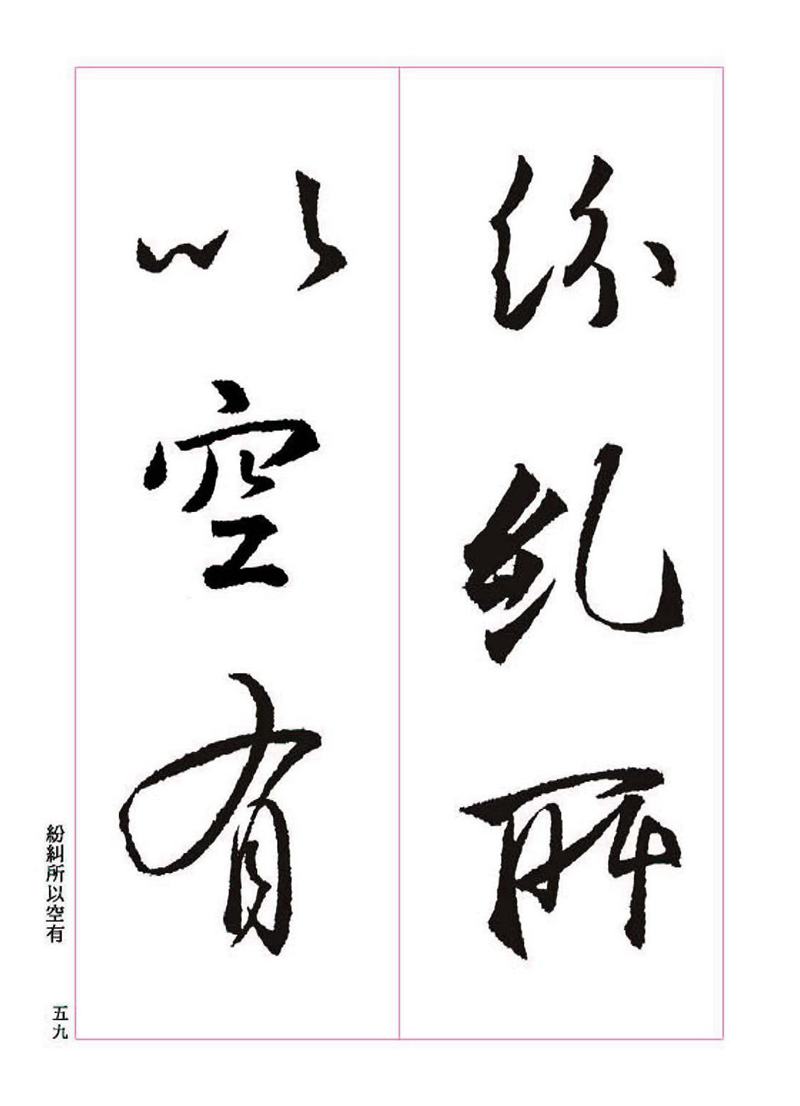 紛糺所
以空有
紛糾所以空有
五九